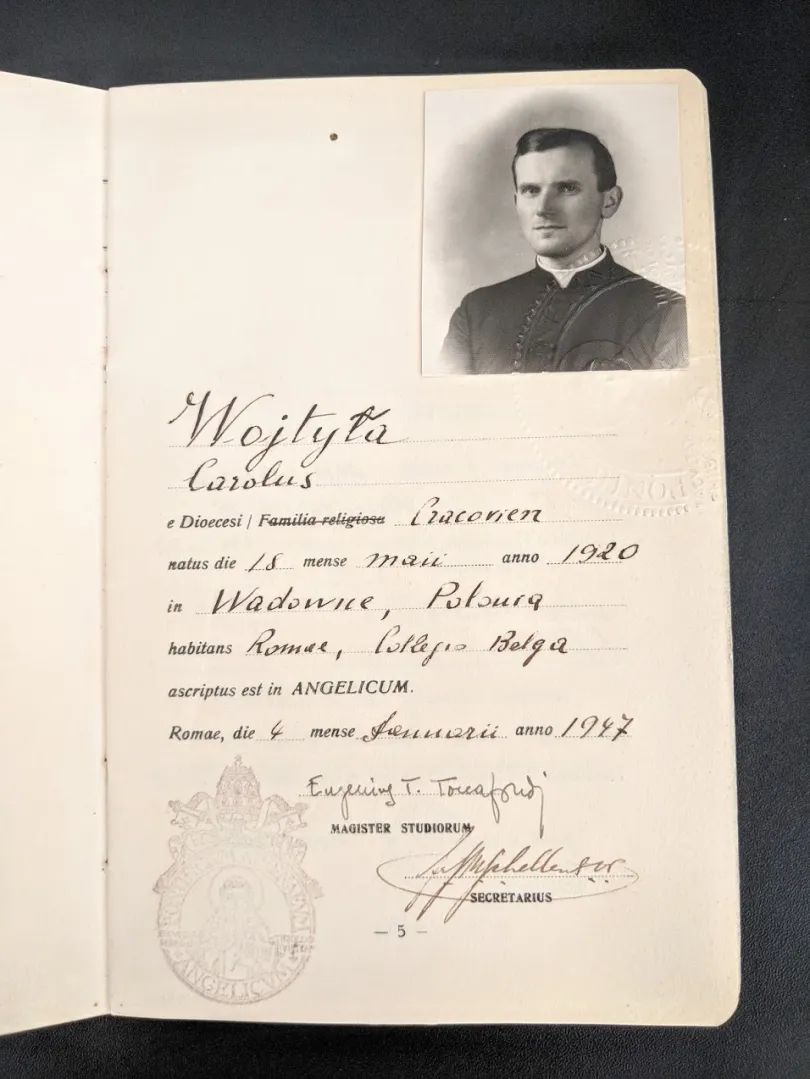 Wojtyła
Carolus
e Dioecesi / Familia religiosa Cracovien
natus die 18 mense maii anno 1920
in Wadowice, Polonia
habitans Romae, Collegio Belga
ascriptus est in ANGELICUM.
Romae, die 4 mense Januarii anno 1947
Eugenius T. Toccafondi
MAGISTER STUDIORUM
SECRETARIUS
— 5 —
ANGELICVM